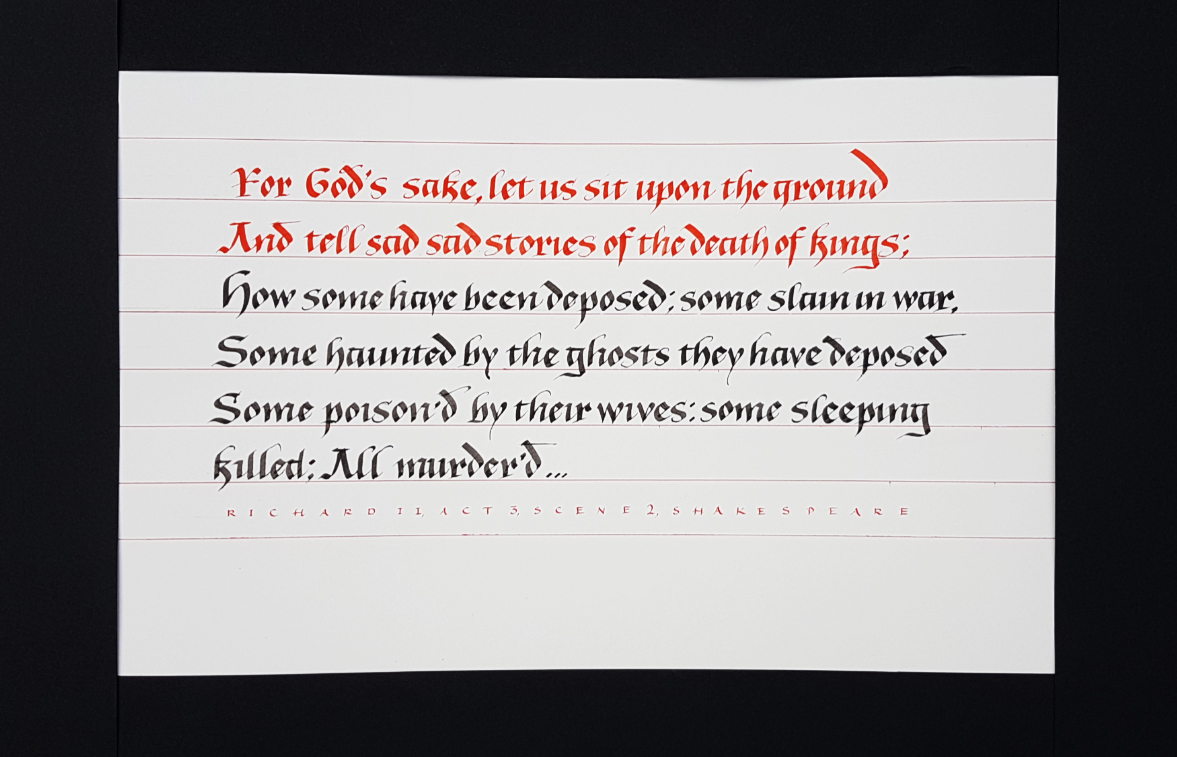 For God's sake, let us sit upon the ground
And tell sad sad stories of the death of kings;
How some have been deposed; some slain in war,
Some haunted by the ghosts they have deposed
Some poison'd by their wives: some sleeping
killed; All murder'd...
RICHARD II, ACT 3, SCENE 2, SHAKESPEARE